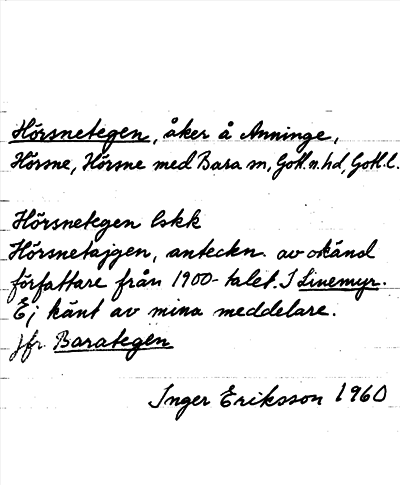 Hörsnetegen, åker å Anninge,
Hörsne, Hörsne med Bara sn, Gotl. n. hd, Gotl. l.
Hörsnetegen lskk
Hörsnetajgen, anteckn. av okänd
författare från 1900-talet. I Linemyr.
Ej känt av mina meddelare.
jfr Barategen
Inger Eriksson 1960